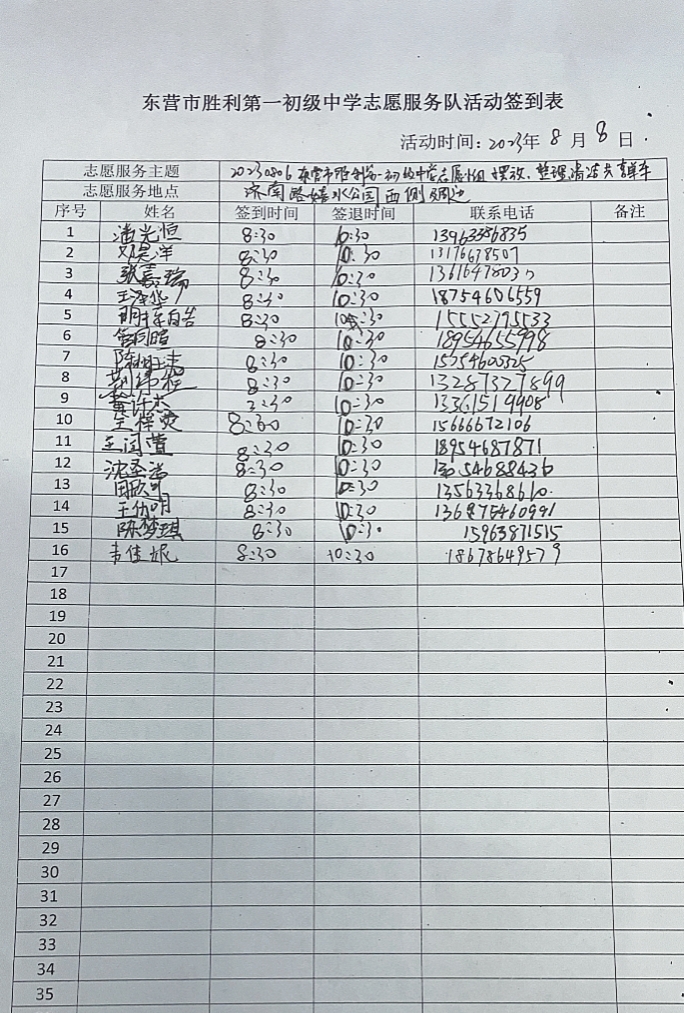 东营市胜利第一初级中学志愿服务队活动签到表
活动时间：2023年 8 月 8 日
志愿服务主题 20230806 东营市胜利第一初级中学志愿 摆放、整理清洁共享单车
志愿服务地点 济南路嬉水公园西侧周边
序号 姓名 签到时间 签退时间 联系电话 备注
1 潘光恒 8:30 10:30 13963386835
2 昊洋 8:30 10:30 13176638507
3 张嘉瑞 8:30 10:30
4 王泽 8:30 10:30 18754606559
5 明 8:30 15552795533
6 8:30 10:30 18954655998
7 陈 8:30 10:30 15754600325
8 8:30 10:30 13287327899
9 10:30 13361519908
10 王梓 10:30 15666672106
11 王闰萱 8:30 10:30 18954687871
12 沈圣 8:30 10:30
13 田 8:30 10:30 13563368610
14 王 8:30 10:30
15 陈梦琪 8:30 10:30 15963871515
16 韦佳妮 8:30 10:30 18678649579
17
18
19
20
21
22
23
24
25
26
27
28
29
30
31
32
33
34
35